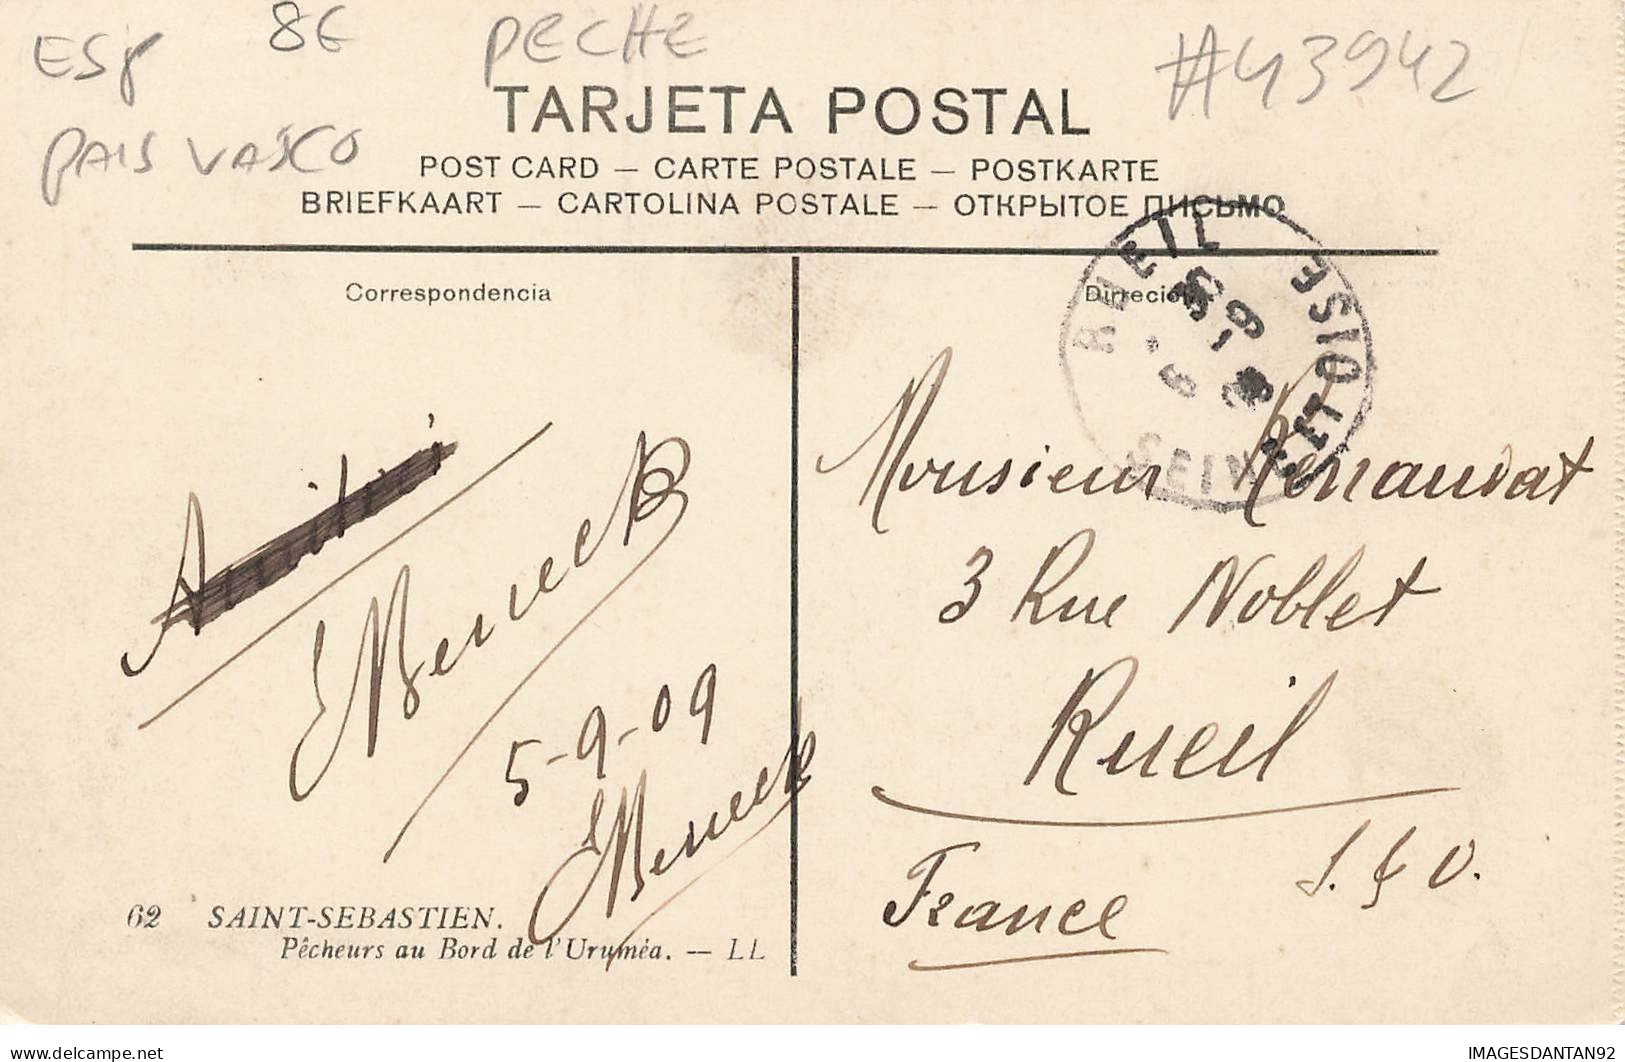 ESp 8€ PECHE #43942
PAIS VASCO
TARJETA POSTAL
POST CARD — CARTE POSTALE — POSTKARTE
BRIEFKAART — CARTOLINA POSTALE — ОТКРЫТОЕ ПИСЬМО
Correspondencia
Dirrecion
RUEIL
SEINE ET OISE
Amitiés
5-9-09
Monsieur
3 Rue Noblet
Rueil
S. & O.
France
62 SAINT-SEBASTIEN.
Pêcheurs au Bord de l'Uruméa. — LL
delcampe.net
IMAGESDANTAN92